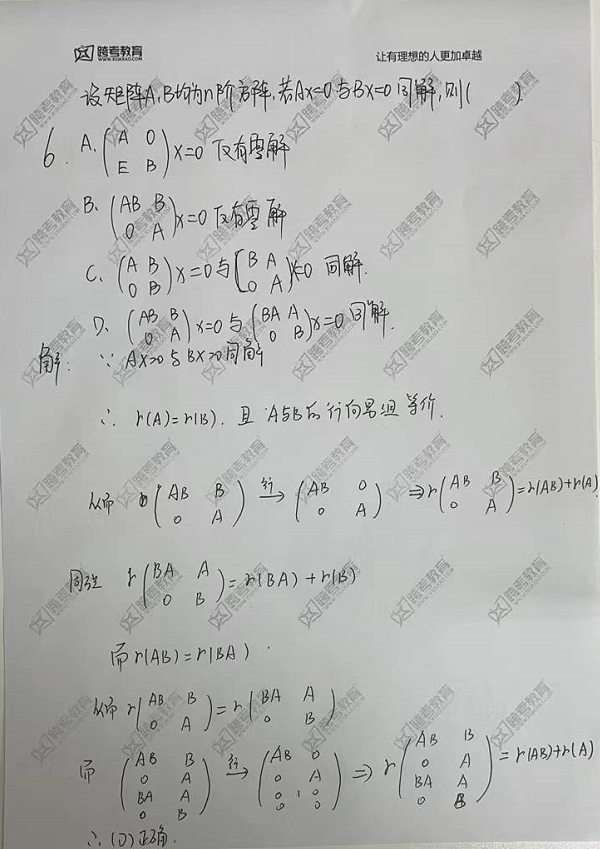 跨考教育
WWW.KUAKAO.COM
让有理想的人更加卓越
设矩阵A,B均为n阶方阵,若Ax=0与Bx=0同解,则( )
6. A. (A 0; E B) x=0 仅有零解
B. (AB B; 0 A) x=0 仅有零解
C. (A B; 0 B) x=0与[B A; 0 A) x=0 同解.
D. (AB B; 0 A) x=0与(BA A; 0 B) x=0同解.
解: ∵ Ax=0与Bx=0同解
∴ r(A)=r(B). 且 A与B的行向量组等价.
从而 (AB B; 0 A) 行→ (AB 0; 0 A) ⇒ r(AB B; 0 A)=r(AB)+r(A)
同理 r(BA A; 0 B)=r(BA)+r(B)
而r(AB)=r(BA)
从而 r(AB B; 0 A)=r(BA A; 0 B)
而 (AB B; 0 A; BA A; 0 B) 行→ (AB 0; 0 A; 0 0; 0 0) ⇒ r(AB B; 0 A; BA A; 0 B)=r(AB)+r(A)
∴ (D)正确.